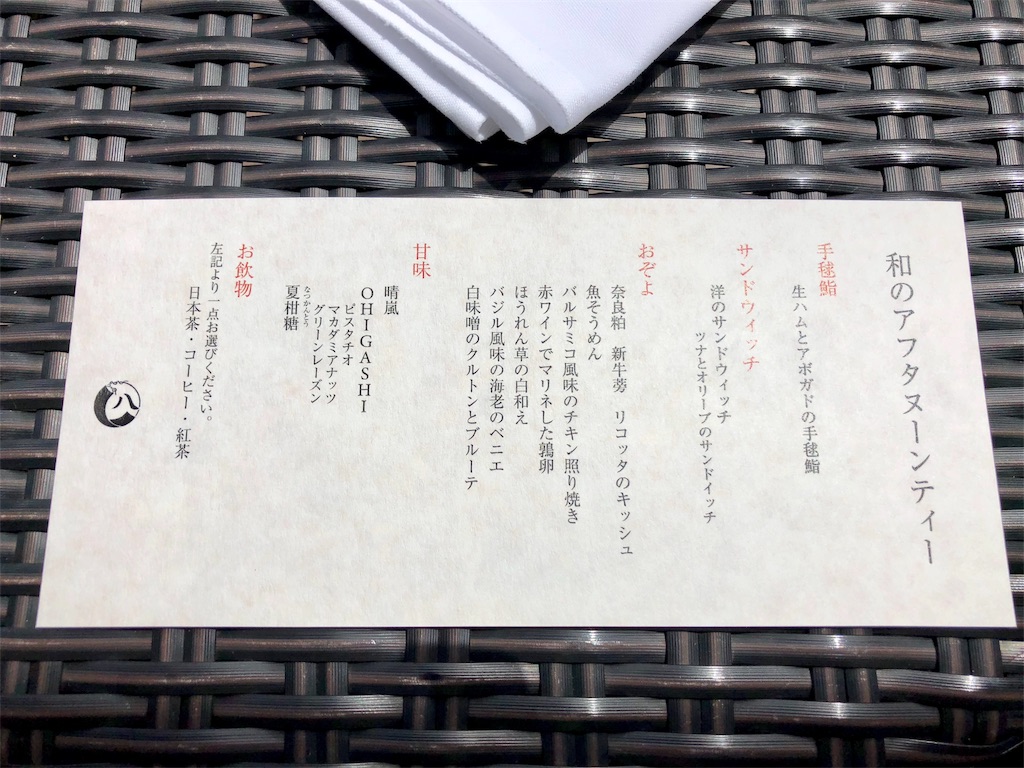 和のアフタヌーンティー
手毬鮨
生ハムとアボガドの手毬鮨
サンドウィッチ
洋のサンドウィッチ
ツナとオリーブのサンドイッチ
おぞよ
奈良粕 新牛蒡 リコッタのキッシュ
魚そうめん
バルサミコ風味のチキン照り焼き
赤ワインでマリネした鶉卵
ほうれん草の白和え
バジル風味の海老のベニエ
白味噌のクルトンとブルーテ
甘味
晴嵐
OHIGASHI
ピスタチオ
マカダミアナッツ
グリーンレーズン
なつかんとう
夏柑糖
お飲物
左記より一点お選びください。
日本茶・コーヒー・紅茶
八